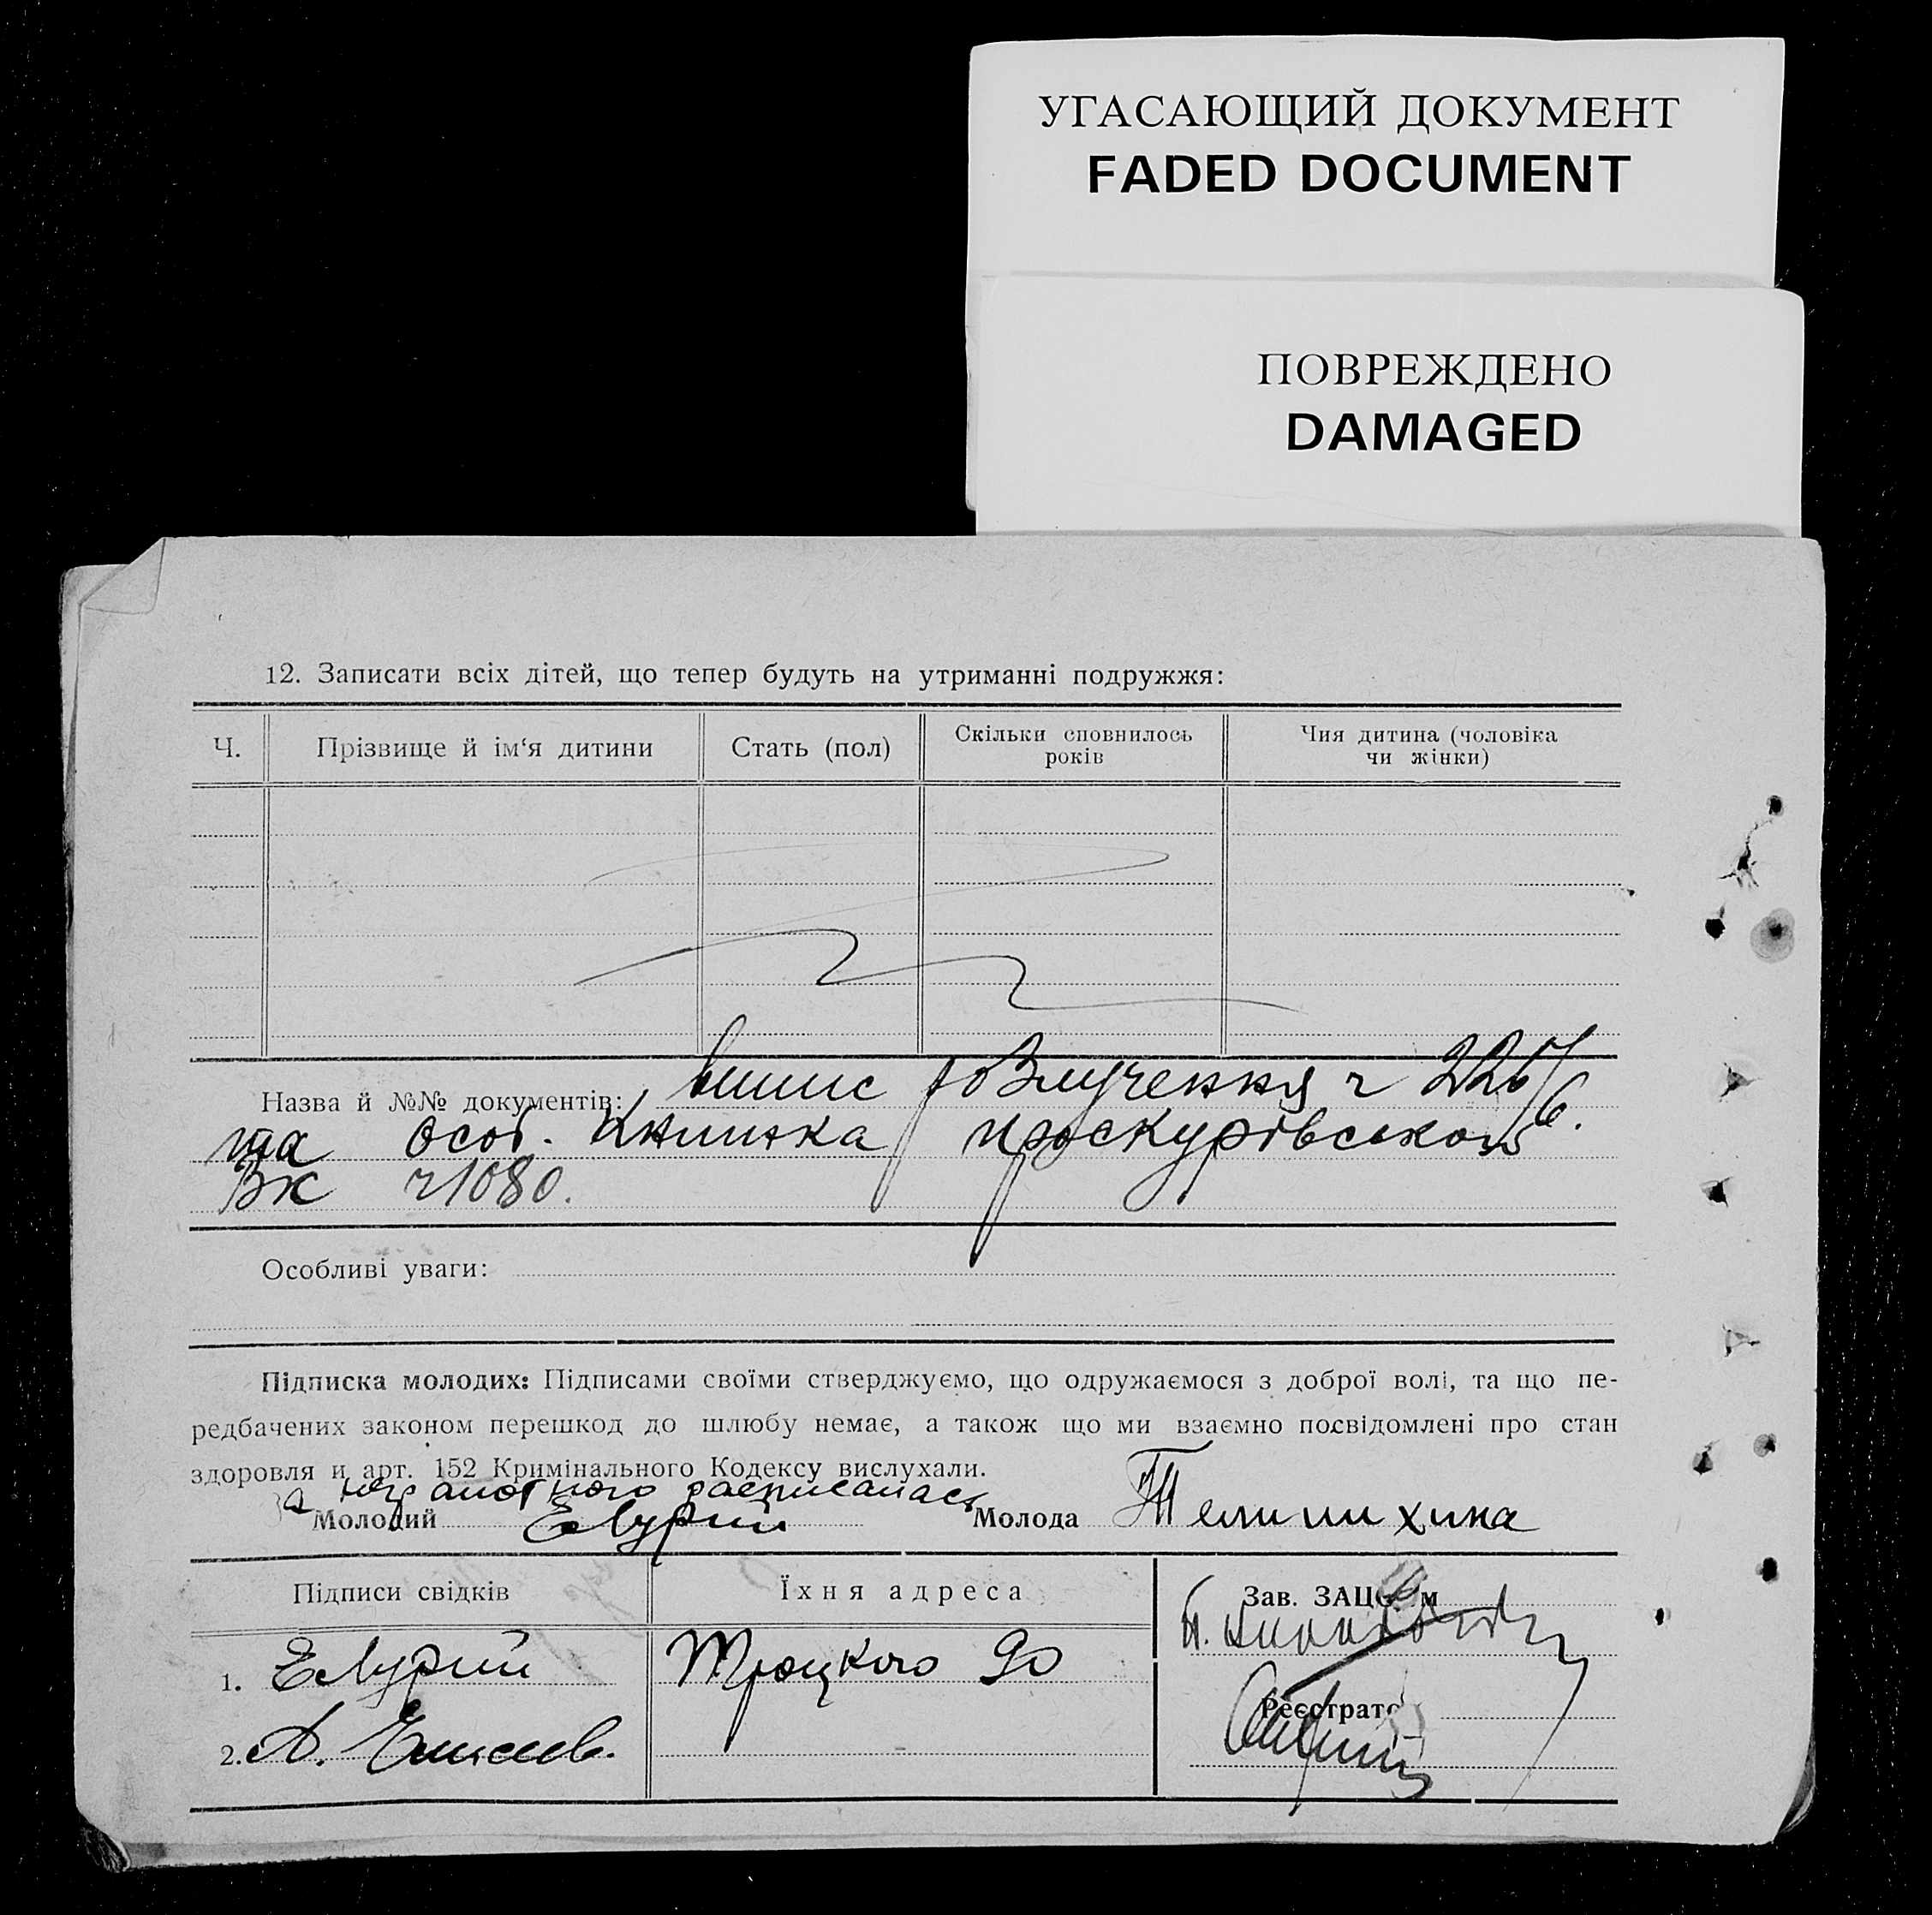 УГАСАЮЩИЙ ДОКУМЕНТ
FADED DOCUMENT
ПОВРЕЖДЕНО
DAMAGED
12. Записати всіх дітей, що тепер будуть на утриманні подружжя:
Ч. Прізвище й ім‘я дитини Стать (пол) Скільки сповнилось років Чия дитина (чоловіка чи жінки)
Назва й №№ документів: випис розлучення ч
та особ. книжка проскурівського
ВК ч 1080.
Особливі уваги:
Підписка молодих: Підписами своїми стверджуємо, що одружаємося з доброї волі, та що пе-
редбачених законом перешкод до шлюбу немає, а також що ми взаємно посвідомлені про стан
здоровля и арт. 152 Кримінального Кодексу вислухали.
за неграмотного расписалась
Молодий Молода
Підписи свідків Їхня адреса Зав. ЗАЦС‘ом
1. Троцкого 90
Реєстратор
2. А. Елисеев.